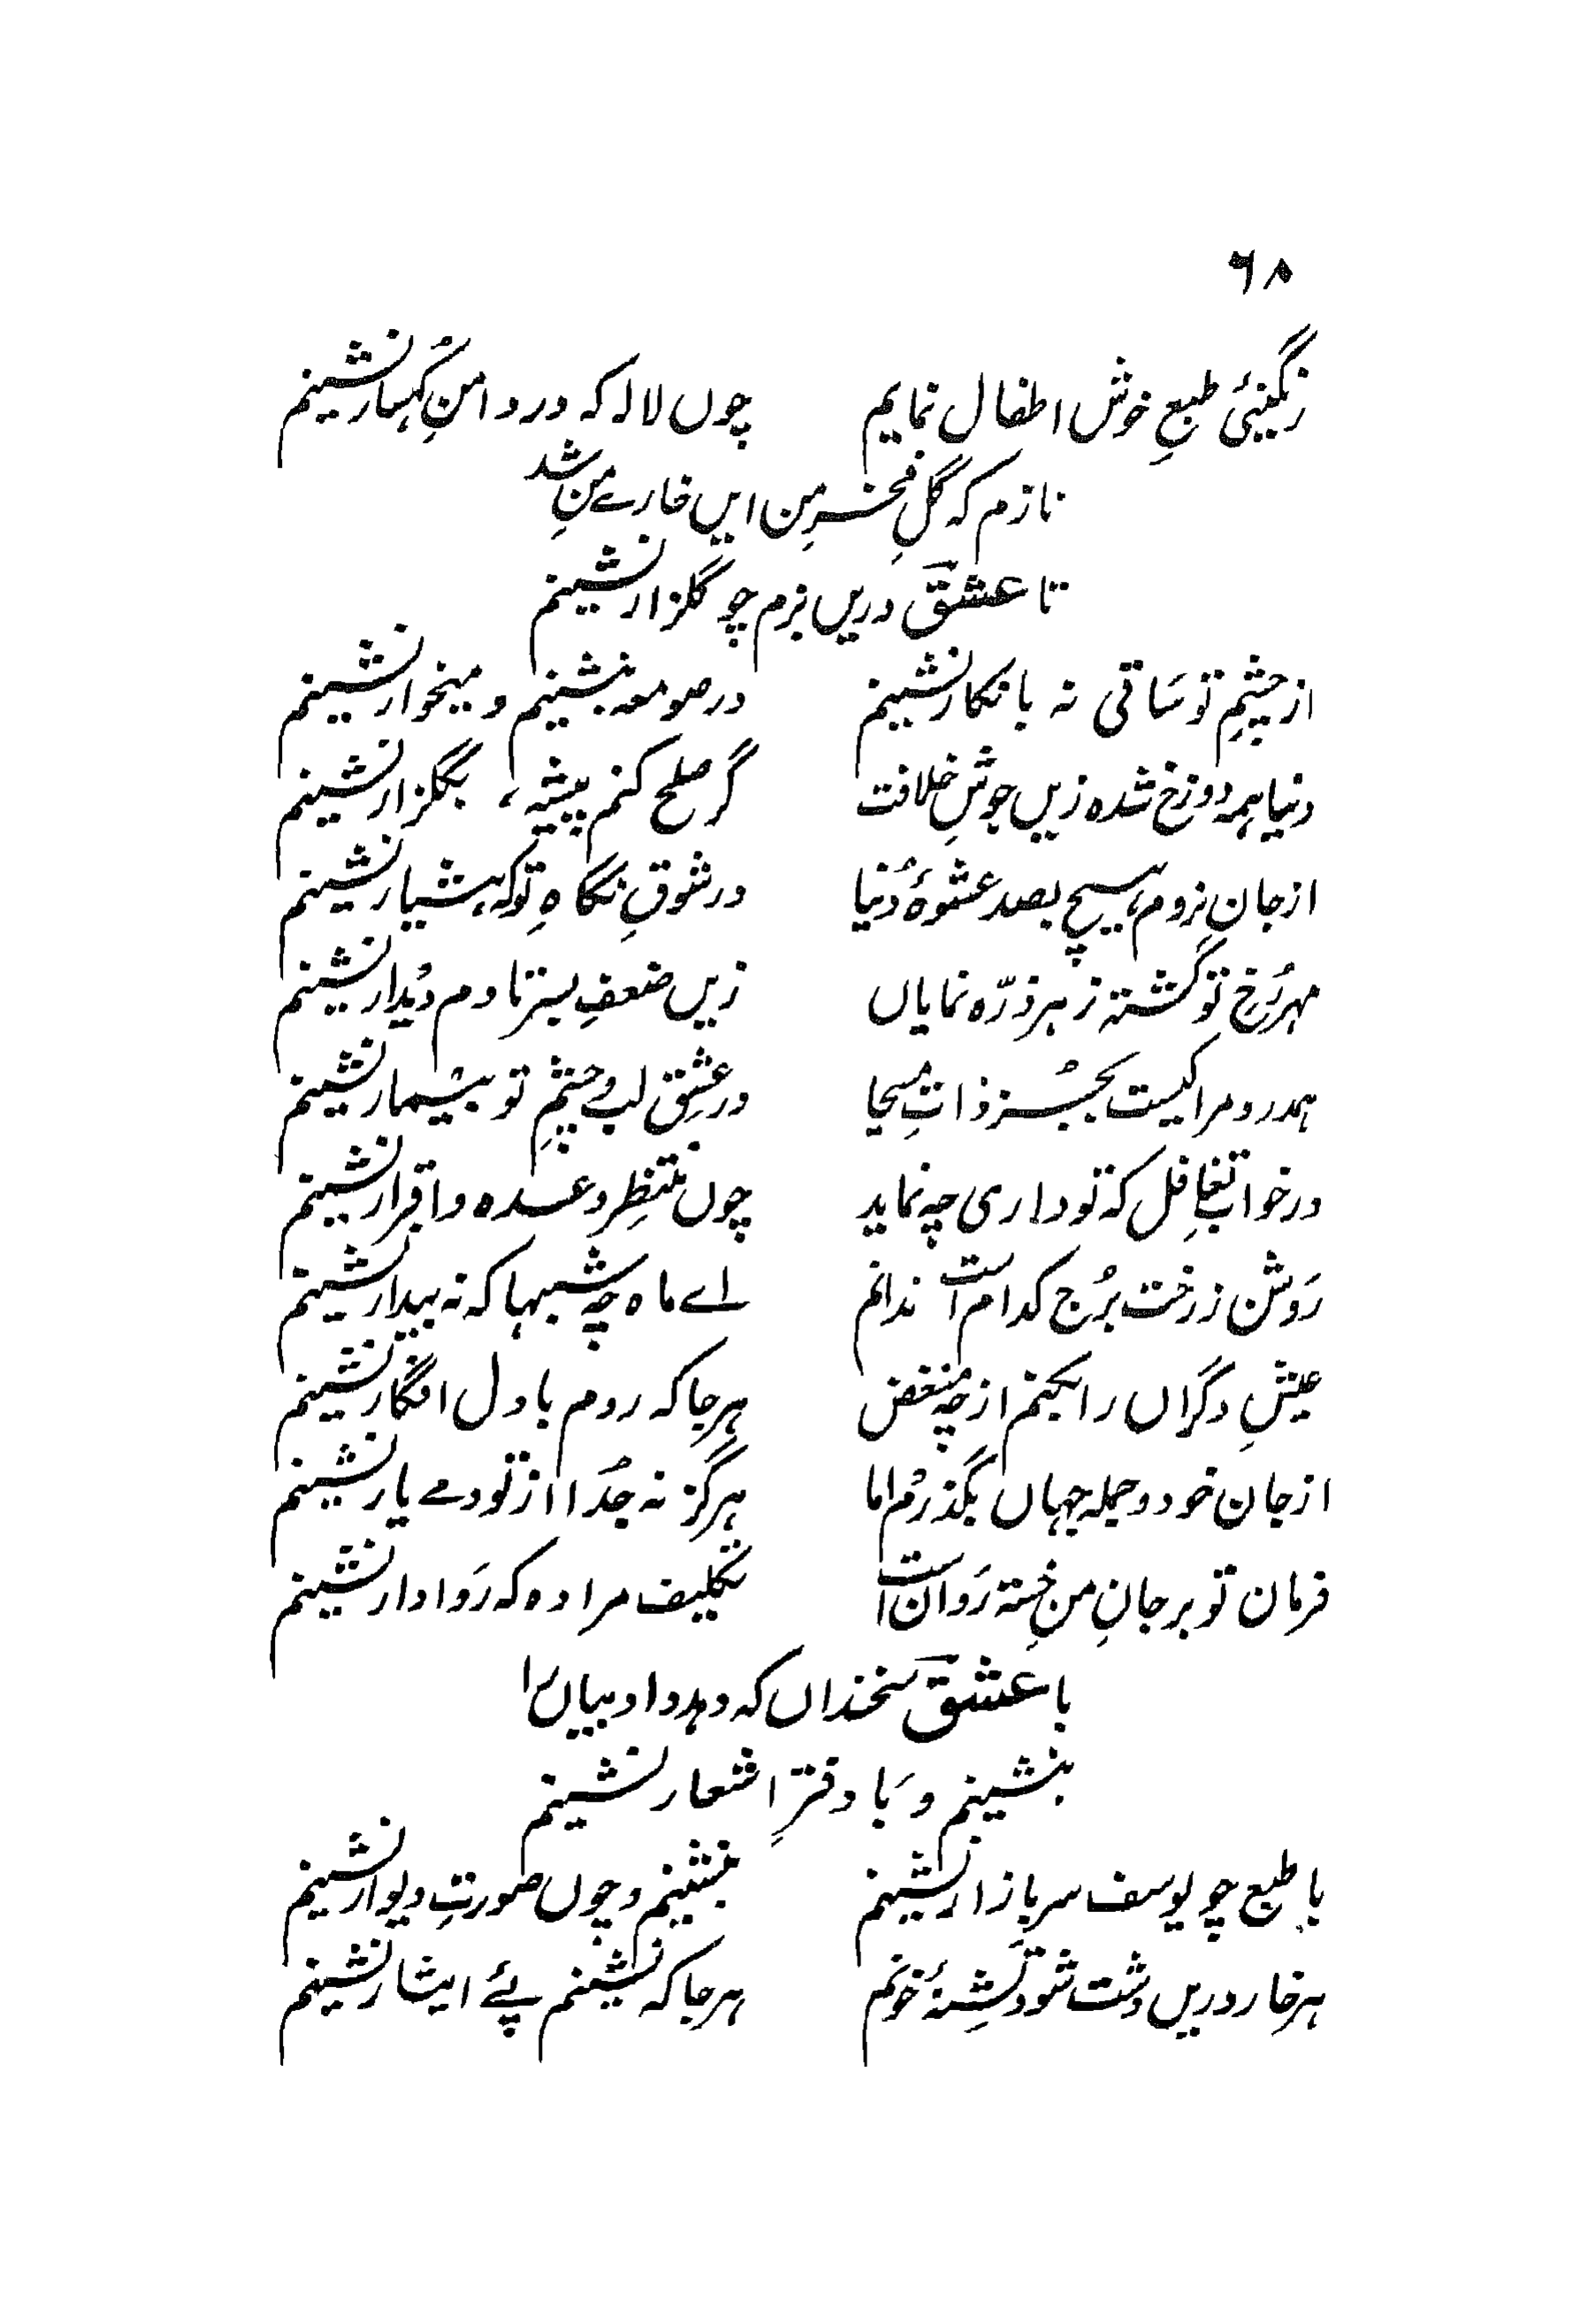 ۶۸
رنگینیٔ طبعِ خوش اطفال نمایم چوں لالہ کہ در دامنِ کُہسار نشینم
نازم کہ گلِ فخرِ من ایں خارِ من شد
تا عشقؔ دریں بزم چو گلزار نشینم
از چشمِ تو ساقی نہ بانکار نشینم در صومعہ بنشینم و میخوار نشینم
دنیا ہمہ دوزخ شدہ زیں جوشِ خلافت گر صلح کنم پیشہ، بگلزار نشینم
از جان نروم ہیچ بصد عشوۂ دُنیا در شوقِ نگاہِ تو کہ ہشیار نشینم
مہرِ رُخِ تو گشتہ ز ہر ذرّہ نمایاں زیں ضعفِ بصر تا دمِ دیدار نشینم
ہمدرد مرا کیست بجُز ذاتِ مسیحا در عشقِ لب و چشمِ تو بیمار نشینم
در خوابِ تغافل کہ تو داری چہ نماید چوں منتظرِ وعدہ و اقرار نشینم
رَوشن ز رخت بُرج کدام است ندانم اے ماہ چہ شبہا کہ نہ بیدار نشینم
عیشِ دگراں را بکنم از چہ مُنغض ہر جا کہ روم با دل افگار نشینم
از جان خود و جملہ جہاں بگذرم اما ہرگز نہ جُدا از تو دمے یار نشینم
فرمان تو بر جانِ منِ خستہ رَوان است تکلیف مرا دہ کہ رَوادار نشینم
با عشقؔ سخنداں کہ دہد داد بیاں را
بنشینم و با دفترِ اشعار نشینم
با طبع چو یوسف سرِ بازار نشینم بنشینم و چوں صورتِ دیوار نشینم
ہر خار دریں دشت شود تشنۂ خونم ہر جا کہ نشینم پئے ایثار نشینم